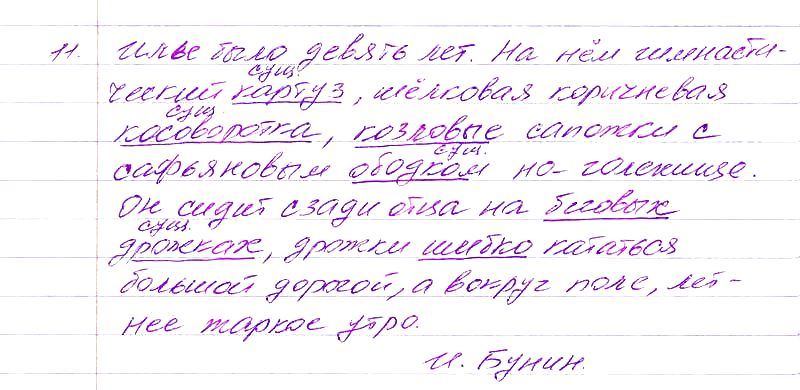 11. Илье было девять лет. На нём гимнасти-
сущ.
ческий картуз, шёлковая коричневая
сущ
косоворотка, козловые сапожки с
сафьяновым ободком по голенище.
сущ.
Он сидит сзади отца на беговых
сущ.
дрожках, дрожки шибко кататься
большой дорогой, а вокруг поле, лет-
нее жаркое утро.
И. Бунин.